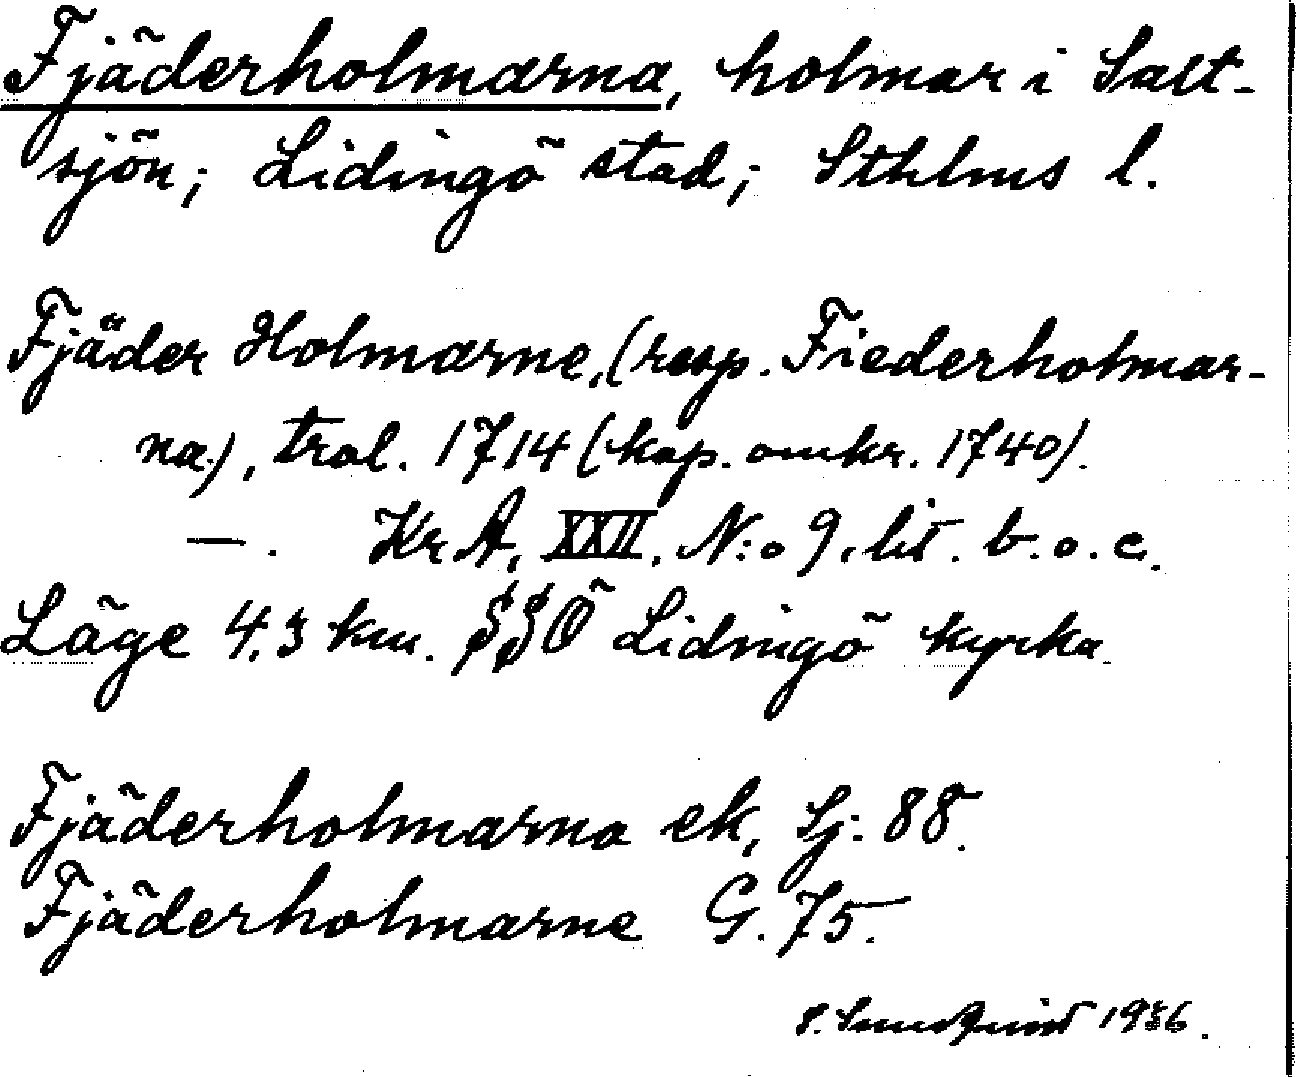 Fjäderholmarna, holmar i Salt-
sjön; Lidingö stad; Sthlms l.
Fjäder Holmarne, (resp. Fiederholmar-
na), trol. 1714 (kop. omkr. 1740).
—. Kr.A, XXII. N:o 9. lit. b. o. c.
Läge 4,3 km. SSÖ Lidingö kyrka
Fjäderholmarna ek, Sj: 88.
Fjäderholmarne G. 75.
S. 1936.